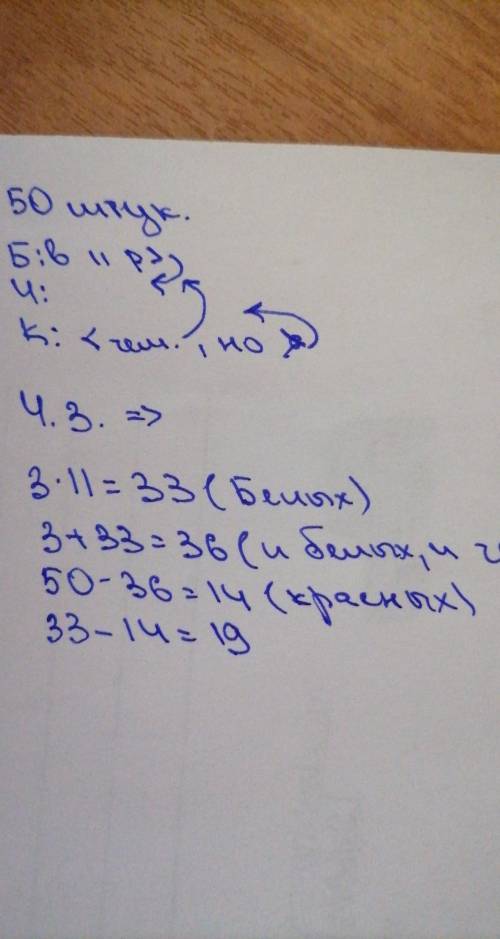 50 штук.
Б: в 11 р >
Ч:
К: < чем. , но >
Ч. 3. =>
3·11=33 (Белых)
3+33=36 (и белых, и ч
50-36=14 (красных)
33-14=19